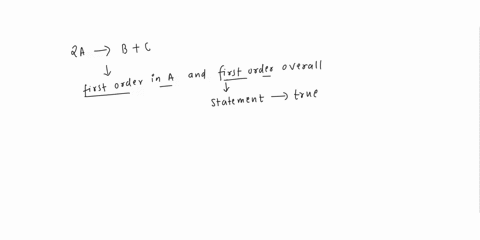 2A → B + C
↓
first order in A and first order overall
↓
statement → true